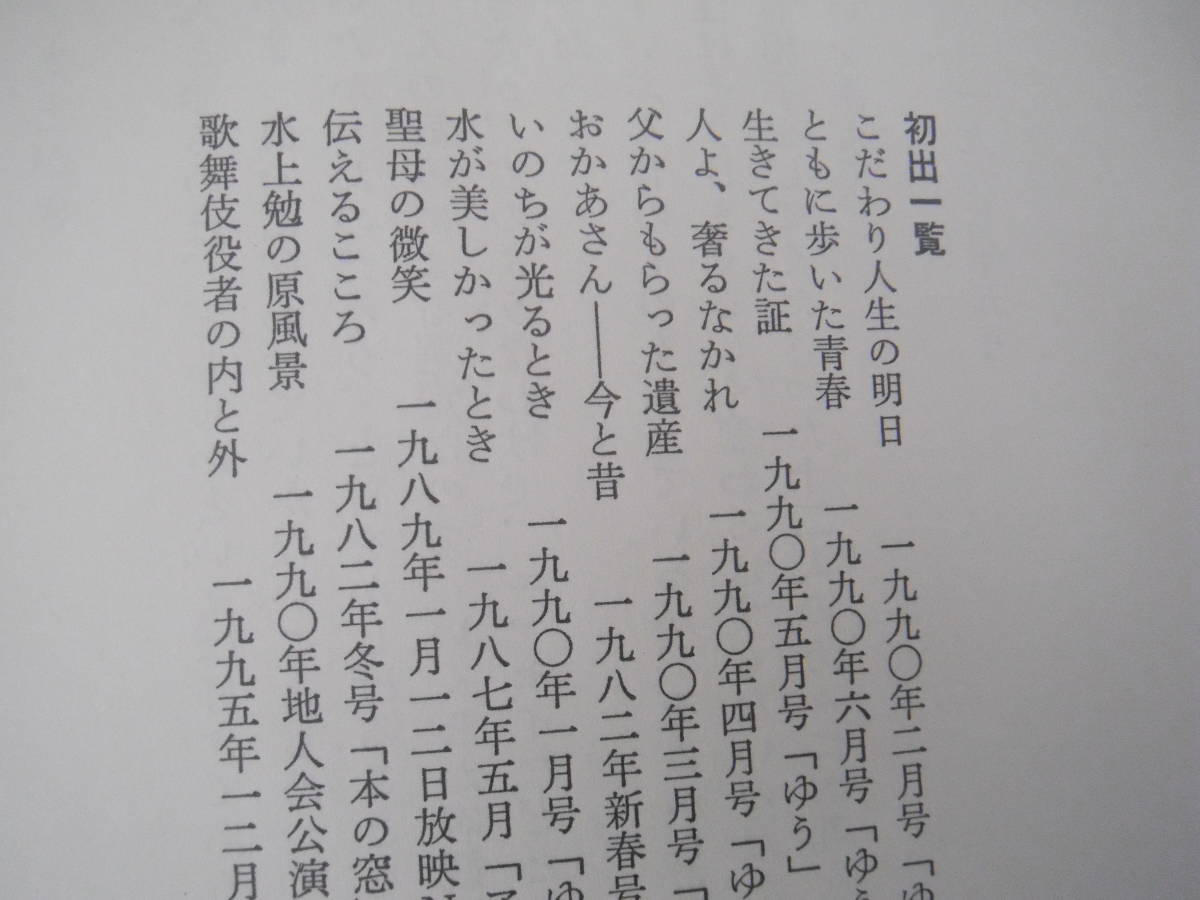 初出一覧
こだわり人生の明日　一九九〇年二月号「ゆ
ともに歩いた青春　一九九〇年六月号「ゆう
生きてきた証　一九九〇年五月号「ゆう」
人よ、奢るなかれ　一九九〇年四月号「ゆ
父からもらった遺産　一九九〇年三月号「
おかあさん――今と昔　一九八二年新春号
いのちが光るとき　一九九〇年一月号「ゆ
水が美しかったとき　一九八七年五月「
聖母の微笑　一九八九年一月一二日放映
伝えるこころ　一九八二年冬号「本の窓
水上勉の原風景　一九九〇年地人会公演
歌舞伎役者の内と外　一九九五年一二月